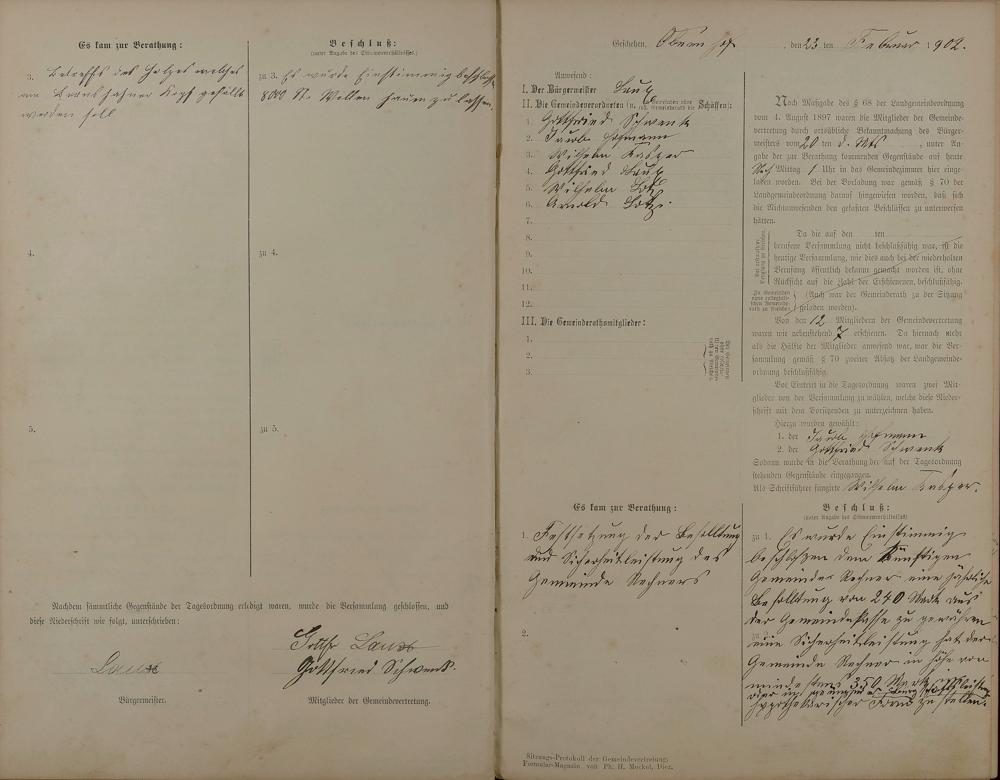 Es kam zur Berathung:
3. Betreffs des Holzes welches
am Kopf gefällt
werden soll
4.
5.
Beschluß:
(unter Angabe des Stimmenverhältnisses.)
zu 3. Es wurde Einstimmig beschlossen
8000 St. Wellen hauen zu lassen.
zu 4.
zu 5.
Nachdem sämmtliche Gegenstände der Tagesordnung erledigt waren, wurde die Versammlung geschlossen, und
diese Niederschrift wie folgt, unterschrieben:
Gottfr Laux
Laux
Gottfried Schwenk.
Bürgermeister.
Mitglieder der Gemeindevertretung.
Geschehen, den 23 ten Februar 1902.
Anwesend:
I. Der Bürgermeister Laux
II. Die Gemeindeverordneten (u. 6 Schöffen):
1. Gottfried Schwenk
2. Jacob Hofmann
3. Wilhelm Kasper
4. Gottfried Laux
5. Wilhelm Lotz
6. Arnold Lotz.
7.
8.
9.
10.
11.
12.
III. Die Gemeinderathsmitglieder:
1.
2.
3.
Nach Maßgabe des § 68 der Landgemeindeordnung
vom 4. August 1897 waren die Mitglieder der Gemeinde-
vertretung durch ortsübliche Bekanntmachung des Bürger-
meisters vom 20 ten d. Mts , unter An-
gabe der zur Berathung kommenden Gegenstände auf heute
Nach Mittag 1 Uhr in das Gemeindezimmer hier einge-
laden worden. Bei der Vorladung war gemäß § 70 der
Landgemeindeordnung darauf hingewiesen worden, daß sich
die Nichtanwesenden den gefaßten Beschlüssen zu unterwerfen
hätten.
Da die auf den ten
berufene Versammlung nicht beschlußfähig war, ist die
heutige Versammlung, wie dies auch bei der wiederholten
Berufung öffentlich bekannt gemacht worden ist, ohne
Rücksicht auf die Zahl der Erschienenen, beschlußfähig.
(Auch war der Gemeinderath zu der Sitzung
geladen worden).
Von den 12 Mitgliedern der Gemeindevertretung
waren wie nebenstehend 7 erschienen. Da hiernach mehr
als die Hälfte der Mitglieder anwesend war, war die Ver-
sammlung gemäß § 70 zweiter Absatz der Landgemeinde-
ordnung beschlußfähig.
Vor Eintritt in die Tagesordnung waren zwei Mit-
glieder von der Versammlung zu wählen, welche diese Nieder-
schrift mit dem Vorsitzenden zu unterzeichnen haben.
Hierzu wurden gewählt:
1. der Jacob Hofmann
2. der Gottfried Schwenk
Sodann wurde in die Berathung der auf der Tagesordnung
stehenden Gegenstände eingegangen.
Als Schriftführer fungirte Wilhelm Kasper.
Es kam zur Berathung:
1. Festsetzung der Besolltung
und Sicherheitleistung des
Gemeinde Rechners
2.
Beschluß:
(unter Angabe des Stimmenverhältnisses)
zu 1. Es wurde Einstimmig
beschloßen dem Künftigen
Gemeinde Rechner eine jährliche
Besolltung von 240 Mark aus
der Gemeindekasse zu gewähren
eine Sicherheitsleistung hat der
Gemeinde Rechner in höhe von
mindestens 350 Mark
hypothekarischer Form zu stellen.
Sitzungs-Protokoll der Gemeindevertretung.
Formular-Magazin von Ph. H. Meckel, Diez.